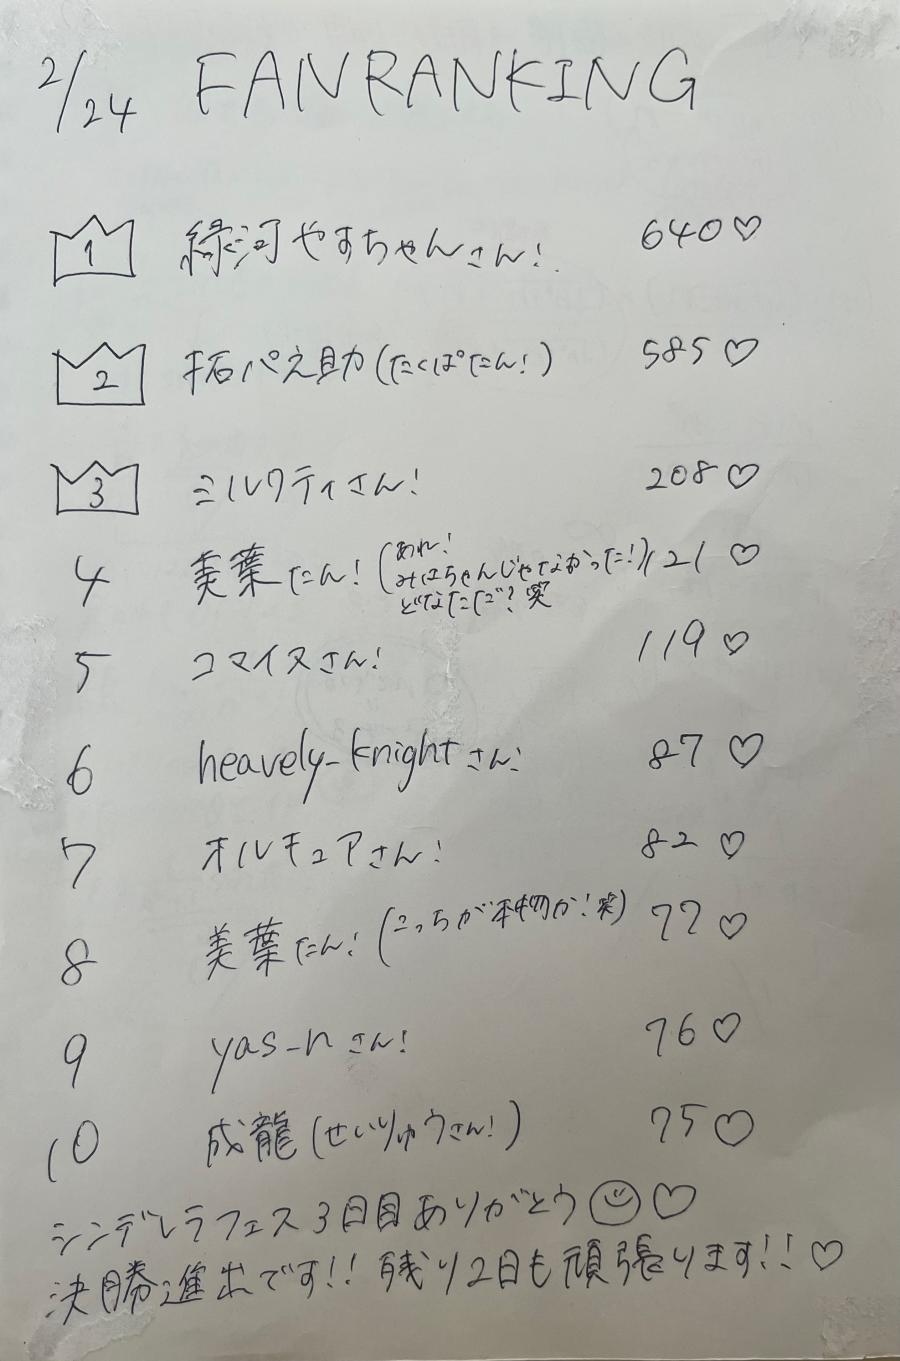 2/24 FANRANKING
1 緑河やすちゃんさん! 640♡
2 拓ぱえ助(たくぱたん!) 585♡
3 ミルクティさん! 208♡
4 美葉たん!(あれ! 121♡
みはちゃんじゃなかった!)
どなただ?笑
5 コマイヌさん! 119♡
6 heavely-knightさん! 87♡
7 オルキュアさん! 82♡
8 美葉たん!(こっちが本物か!笑) 77♡
9 yas_nさん! 76♡
10 成龍(せいりゅうさん!) 75♡
シンデレラフェス3日目ありがとう☺♡
決勝進出です!!残り2日も頑張ります!!♡